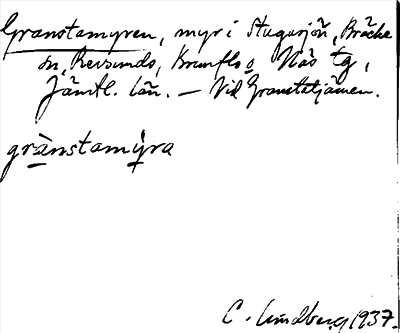 Granstamyren, myr i Stugusjön, Bräcke
sn, Revsunds, Brunflo o Näs tg,
Jämtl. län. — Vid Granstatjärnen.
grànstamỳra
C. Lindberg 1937.